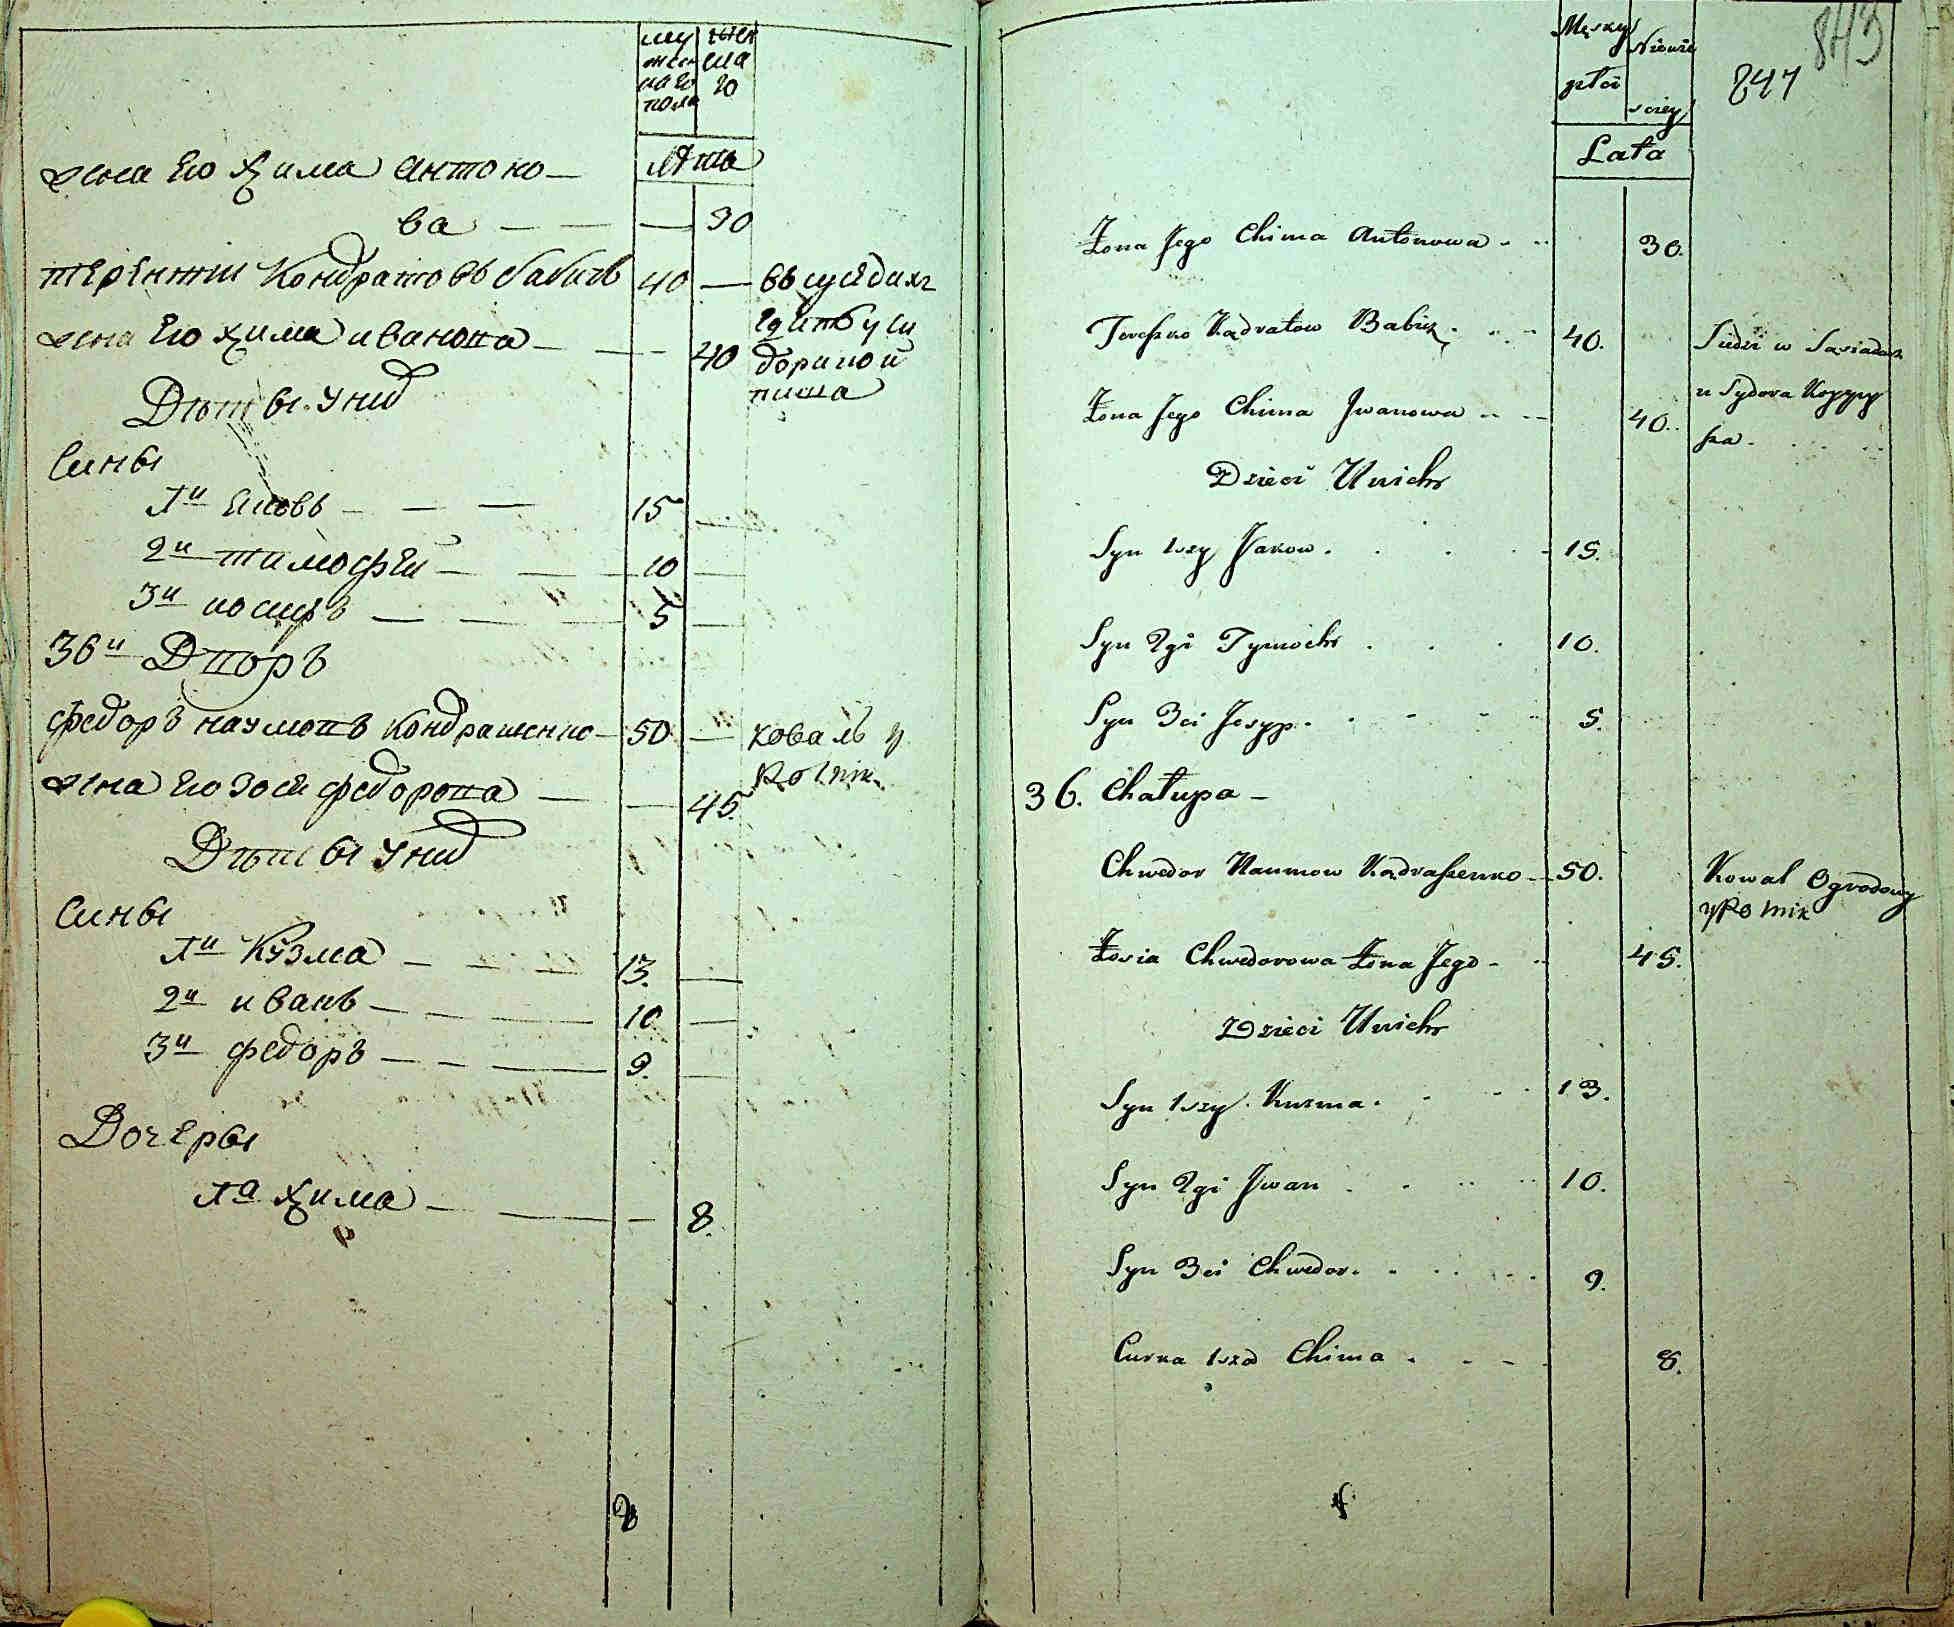 му жен
жеск ска
наго го
пола
Лѣта
жена Его Хима Антоно-
ва 30
терентий Кондратовъ бабичь 40 въ сусѣдихъ
жена Его Хима иванова 40
Дѣты у них
Сины
1й Яковъ 15
2й тимофей 10
3й иосипъ 5
36й Дворъ
федоръ наумовъ Кондрашенко 50 коваль у
Rolnik
жена Его Зося федорова 45
Дѣты у них
Сины
1й Кузма 13
2й иванъ 10
3й федоръ 9
Дочеры
1а Хима 8
843
847
Męzkiy Niewie
płci sciey
Lata
Żona Jego Chima Antonowa 30.
Tereszko Kądratow Babicz 40. Siedzi w Sąsiadach
Żona Jego Chima Jwanowa 40. u Sydora
Dzieci Unich
Syn 1szy Jakow 15.
Syn 2gi Tymoch 10.
Syn 3ci Josyp 5.
36. Chałupa
Chwedor Naumow Kądraszenko 50. Kowal Ogrodowy
y Rolnik
Zosia Chwedorowa Żona Jego 45.
Dzieci Unich
Syn 1szy Kuzma 13.
Syn 2gi Jwan 10.
Syn 3ci Chwedor 9.
Curka 1sza Chima 8.